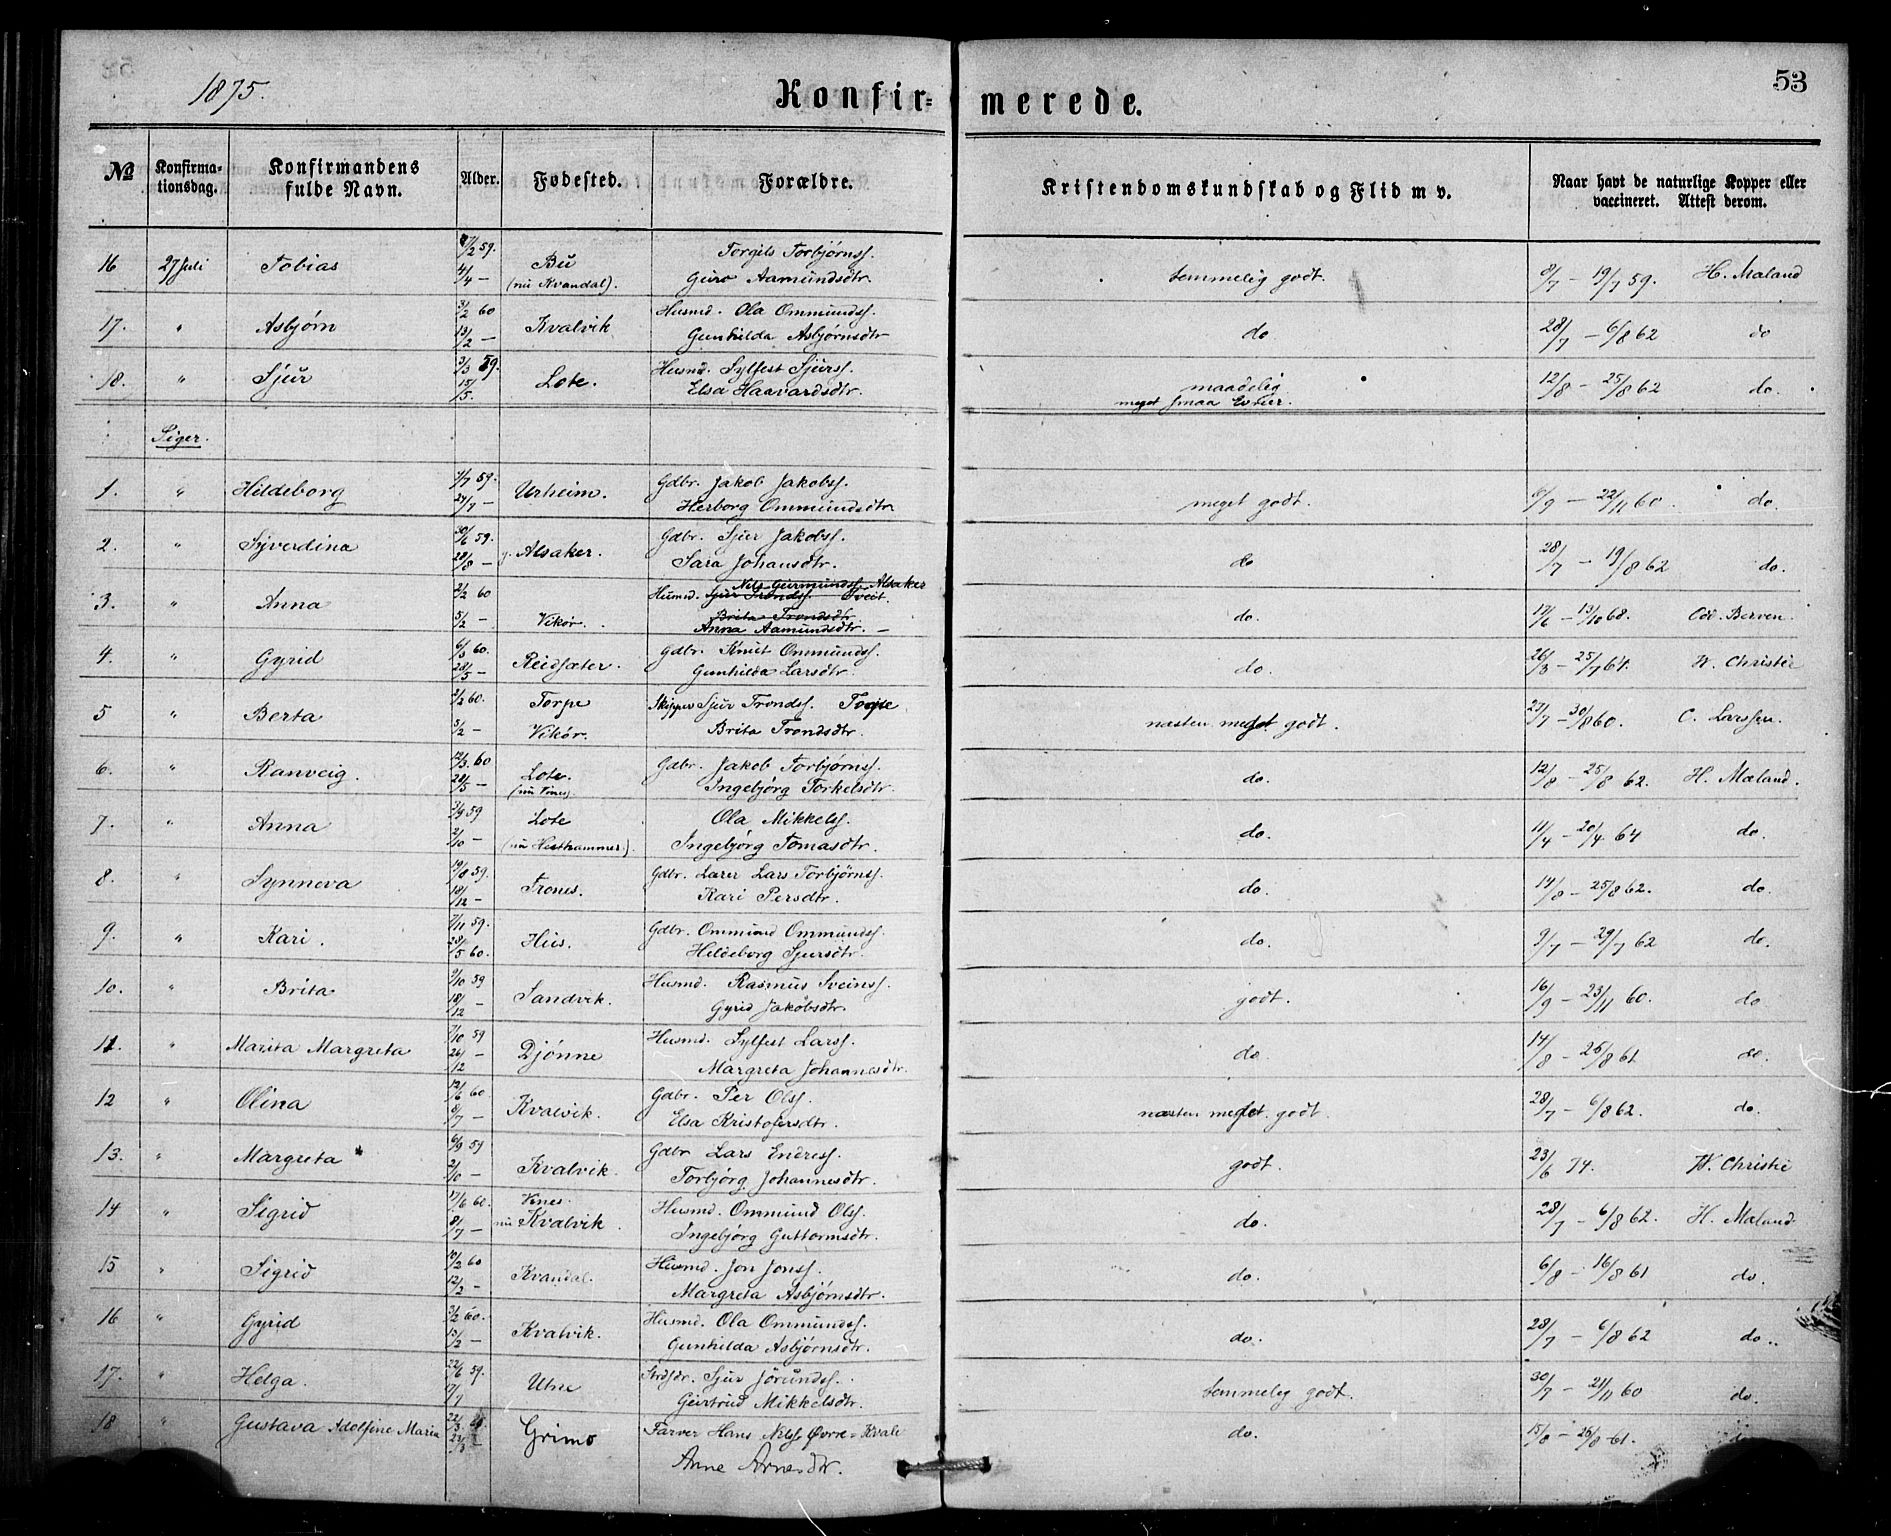 1875.
Konfirmerede.
53
№ Konfirmationsdag. Konfirmandens fulde Navn. Alder. Fødested. Forældre. Kristendomskundskab og Flid m v. Naar havt de naturlige Kopper eller vaccineret. Attest derom.
16 27 Juli Tobias 7/2 59. 4/4 — Bu (nu Kvandal). Torgils Torbjørnss. Guro Aamundsdtr. temmelig godt. 8/7 — 19/7 59. H. Mæland
17. " Asbjørn 3/2 60 13/2 — Kvalvik Husmd. Ola Ommundss. Gunhilda Asbjørnsdtr do. 28/7 — 6/8 62 do
18. " Sjur 2/3 59. 15/5. Lote. Husmd. Sylfest Sjurss. Elsa Haavardsdtr. maadelig meget smaa Evner. 12/8 — 25/8 62 do.
Piger.
1. " Hildeborg 1/7 59. 24/7 — Urheim. Gdbr. Jakob Jakobss. Herborg Ommundsdtr meget godt. 6/9 — 22/11 60. do.
2. " Syverdina 30/6 59. 28/8 — Alsaker. Gdbr. Sjur Jakobss. Sara Johansdtr. do 28/7 — 19/8 62 do.
3. " Anna 2/2 60 5/2 — Vikør. Husmd. Nils Geirmundss. Alsaker Sjur Tronds. Tveit. Brita Trondsdtr Anna Aamundsdtr. — do. 17/6 — 13/10 68. Odd. Berven.
4. " Gyrid 6/3 60. 28/5 — Reidsæter. Gdbr. Knut Ommundss. Gunhilda Larsdtr. do. 26/3 — 25/7 64. W. Christie
5 " Berta 2/2 60. 5/2 — Torpe Vikør. Skipper Sjur Trondss. Torpe Brita Trondsdtr. næsten meget godt. 23/7 — 30/8 60. C. Larssen.
6. " Ranveig. 12/3. 60 28/5 — Lote. (nu Vines). Gdbr. Jakob Torbjørnss. Ingebjørg Torkelsdtr. do. 12/8 — 25/8 62. H. Mæland.
7. " Anna 3/9 59 2/10 — Lote (nu Hesthammer). Ola Mikkelss. Ingebjørg Tomasdtr. do. 11/4 — 20/4 64 do.
8. " Synneva 19/8 59. 18/12 — Trones. Gdbr. Lærer Lars Torbjørnss. Kari Persdtr. do. 14/8 — 25/8 62. do.
9. " Kari. 7/11 59. 28/5 60. Hus. Gdbr. Ommund Ommundss. Hildeborg Sjursdtr. do. 9/7 — 29/7 62 do.
10. " Brita 9/10 59 18/12 — Sandvik. Husmd. Rasmus Sveinss. Gyrid Jakobsdtr. godt. 16/9 — 23/11 60. do
11. " Marita Margreta 7/10 59 26/12 — Djønne Husmd. Sylfest Larss. Margreta Johannesdtr. do. 14/8 — 26/8 61 do.
12 " Olina 12/6 60 8/7 — Kvalvik. Gdbr. Per Olss. Elsa Kristofersdtr. næsten meget godt. 28/7 — 6/8 62. do.
13. " Margreta 6/9 59 2/10 — Kvalvik. Gdbr Lars Endress. Torbjørg Johannesdtr. godt. 23/6 74. W. Christie
14 " Sigrid 17/6 60. 8/7 — Vines. nu Kvalvik. Husmd. Ommund Olss. Ingebjørg Guttormsdtr. do. 28/7 — 6/8 62. H. Mæland
15 " Sigrid 10/2 60 12/2 — Kvandal. Husmd. Jon Jonss. Margreta Asbjørnsdtr. do. 6/8 — 16/8 61 do.
16 " Gyrid 3/2 60. 13/2 — Kvalvik. Husmd. Ola Ommundss. Gunhilda Asbjørnsdtr. do. 28/7 — 6/8 62 do.
17. " Helga. 22/6 59. 17/7 Utne Sjur Jørundss. Geirtrud Mikkelsdtr. temmelig godt. 30/7 — 21/11 60 do.
18 " Gustava Adolfine Maria 22/3 23/3 Grimo Farver Hans Nilss Øvre-Kvale Anne Arnesdtr. do. 15/8 — 26/8 61.